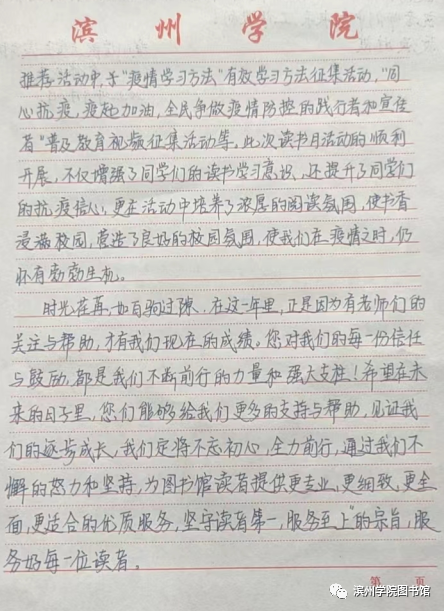 滨州学院
推荐活动中,于“疫情学习方法”有效学习方法征集活动,“同
心抗疫,疫起加油,全民争做疫情防控的践行者和宣传
者”普及教育视频征集活动等,此次读书月活动的顺利
开展,不仅增强了同学们的读书学习意识,还提升了同学们
的抗疫信心,更在活动中培养了浓厚的阅读氛围,使书香
浸满校园,营造了良好的校园氛围,使我们在疫情之时,仍
怀有勃勃生机。
时光荏苒,如白驹过隙,在这一年里,正是因为有老师们的
关注与帮助,才有我们现在的成绩。您对我们的每一份信任
与鼓励,都是我们不断前行的力量和强大支柱!希望在未
来的日子里,您们能够给我们更多的支持与帮助,见证我
们的逐步成长,我们定将不忘初心,全力前行,通过我们不
懈的努力和坚持,为图书馆读者提供更专业,更细致,更全
面,更适合的优质服务,坚守读者第一,服务至上”的宗旨,服
务好每一位读者。
第 页
滨州学院图书馆